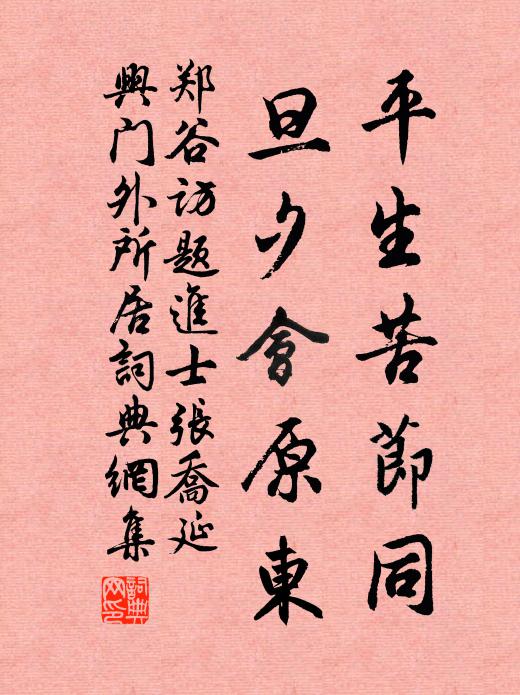 平生苦節同
旦夕會原東
郑谷访題進士張喬延
興门外所居詞典網集
詞典网印